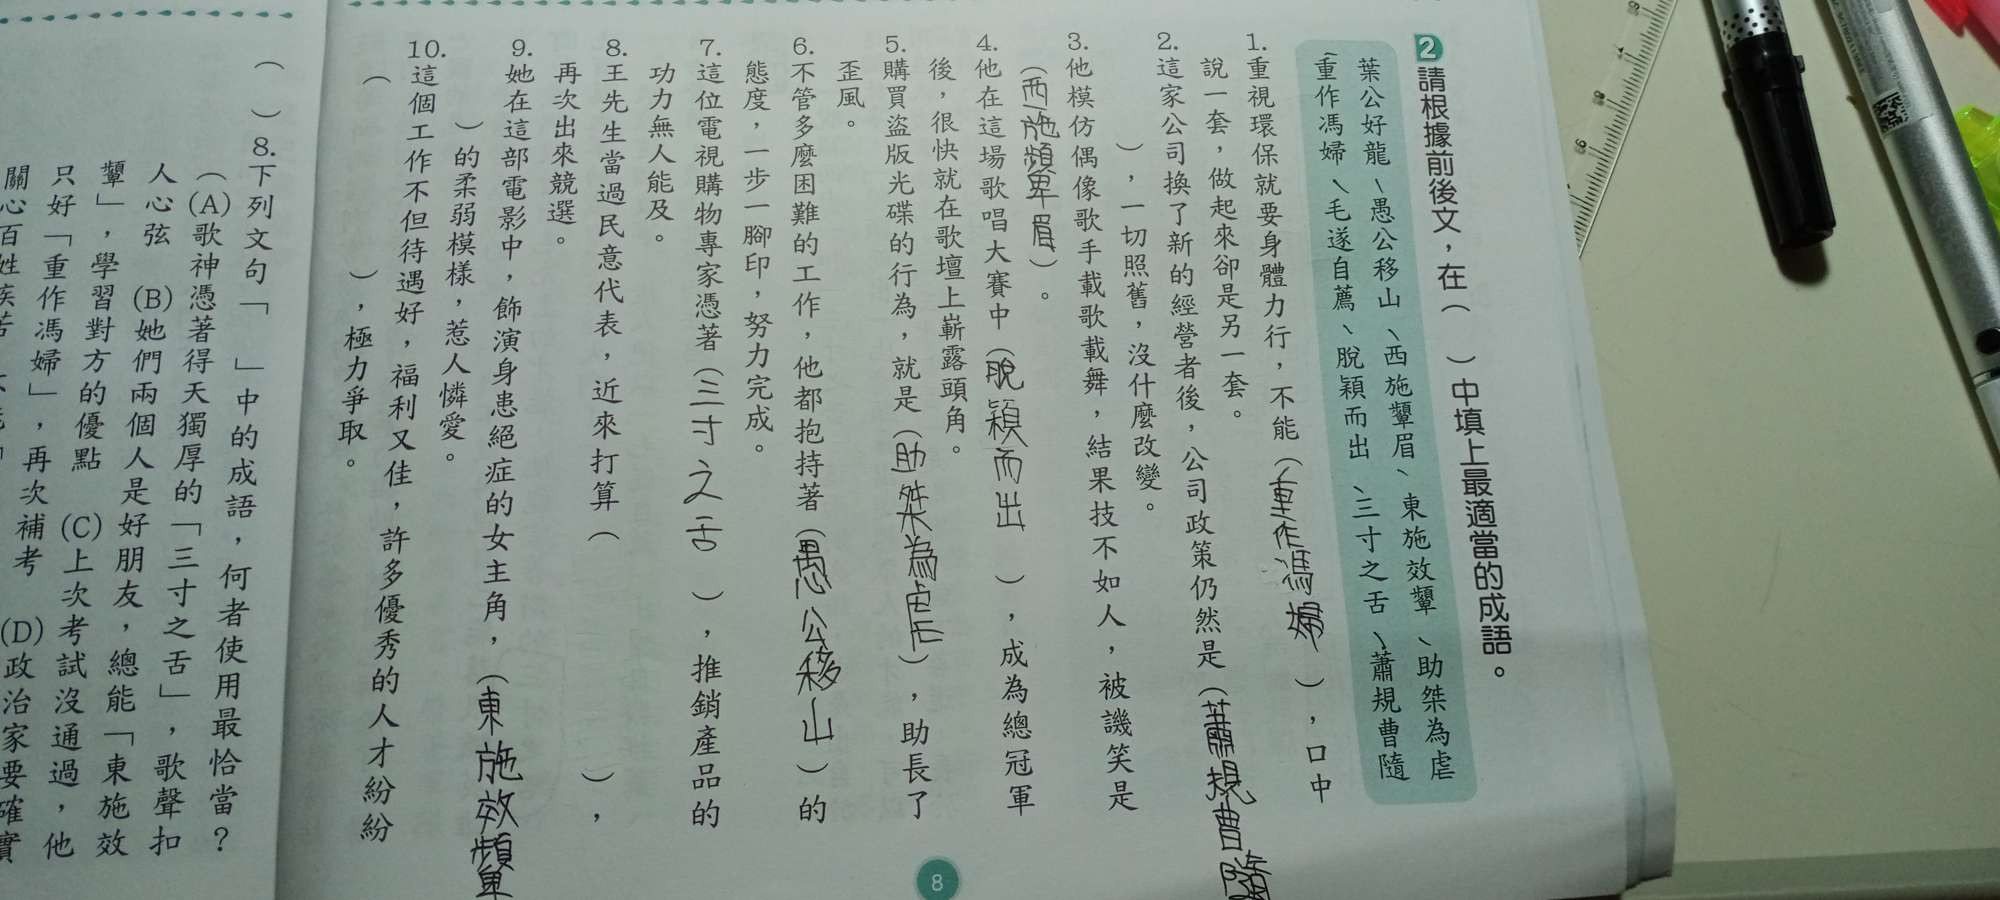 2請根據前後文，在（　）中填上最適當的成語。
葉公好龍、愚公移山、西施顰眉、東施效顰、助桀為虐
重作馮婦、毛遂自薦、脫穎而出、三寸之舌、蕭規曹隨
1.重視環保就要身體力行，不能（重作馮婦），口中
說一套，做起來卻是另一套。
2.這家公司換了新的經營者後，公司政策仍然是（蕭規曹隨
），一切照舊，沒什麼改變。
3.他模仿偶像歌手載歌載舞，結果技不如人，被譏笑是
（西施顰眉）。
4.他在這場歌唱大賽中（脫穎而出），成為總冠軍
後，很快就在歌壇上嶄露頭角。
5.購買盜版光碟的行為，就是（助桀為虐），助長了
歪風。
6.不管多麼困難的工作，他都抱持著（愚公移山）的
態度，一步一腳印，努力完成。
7.這位電視購物專家憑著（三寸之舌），推銷產品的
功力無人能及。
8.王先生當過民意代表，近來打算（　），
再次出來競選。
9.她在這部電影中，飾演身患絕症的女主角，（東施效顰
）的柔弱模樣，惹人憐愛。
10.這個工作不但待遇好，福利又佳，許多優秀的人才紛紛
（　），極力爭取。
8
（　）8.下列文句「　」中的成語，何者使用最恰當？
(A)歌神憑著得天獨厚的「三寸之舌」，歌聲扣
人心弦　(B)她們兩個人是好朋友，總能「東施效
顰」，學習對方的優點　(C)上次考試沒通過，他
只好「重作馮婦」，再次補考　(D)政治家要確實
關心百姓疾苦